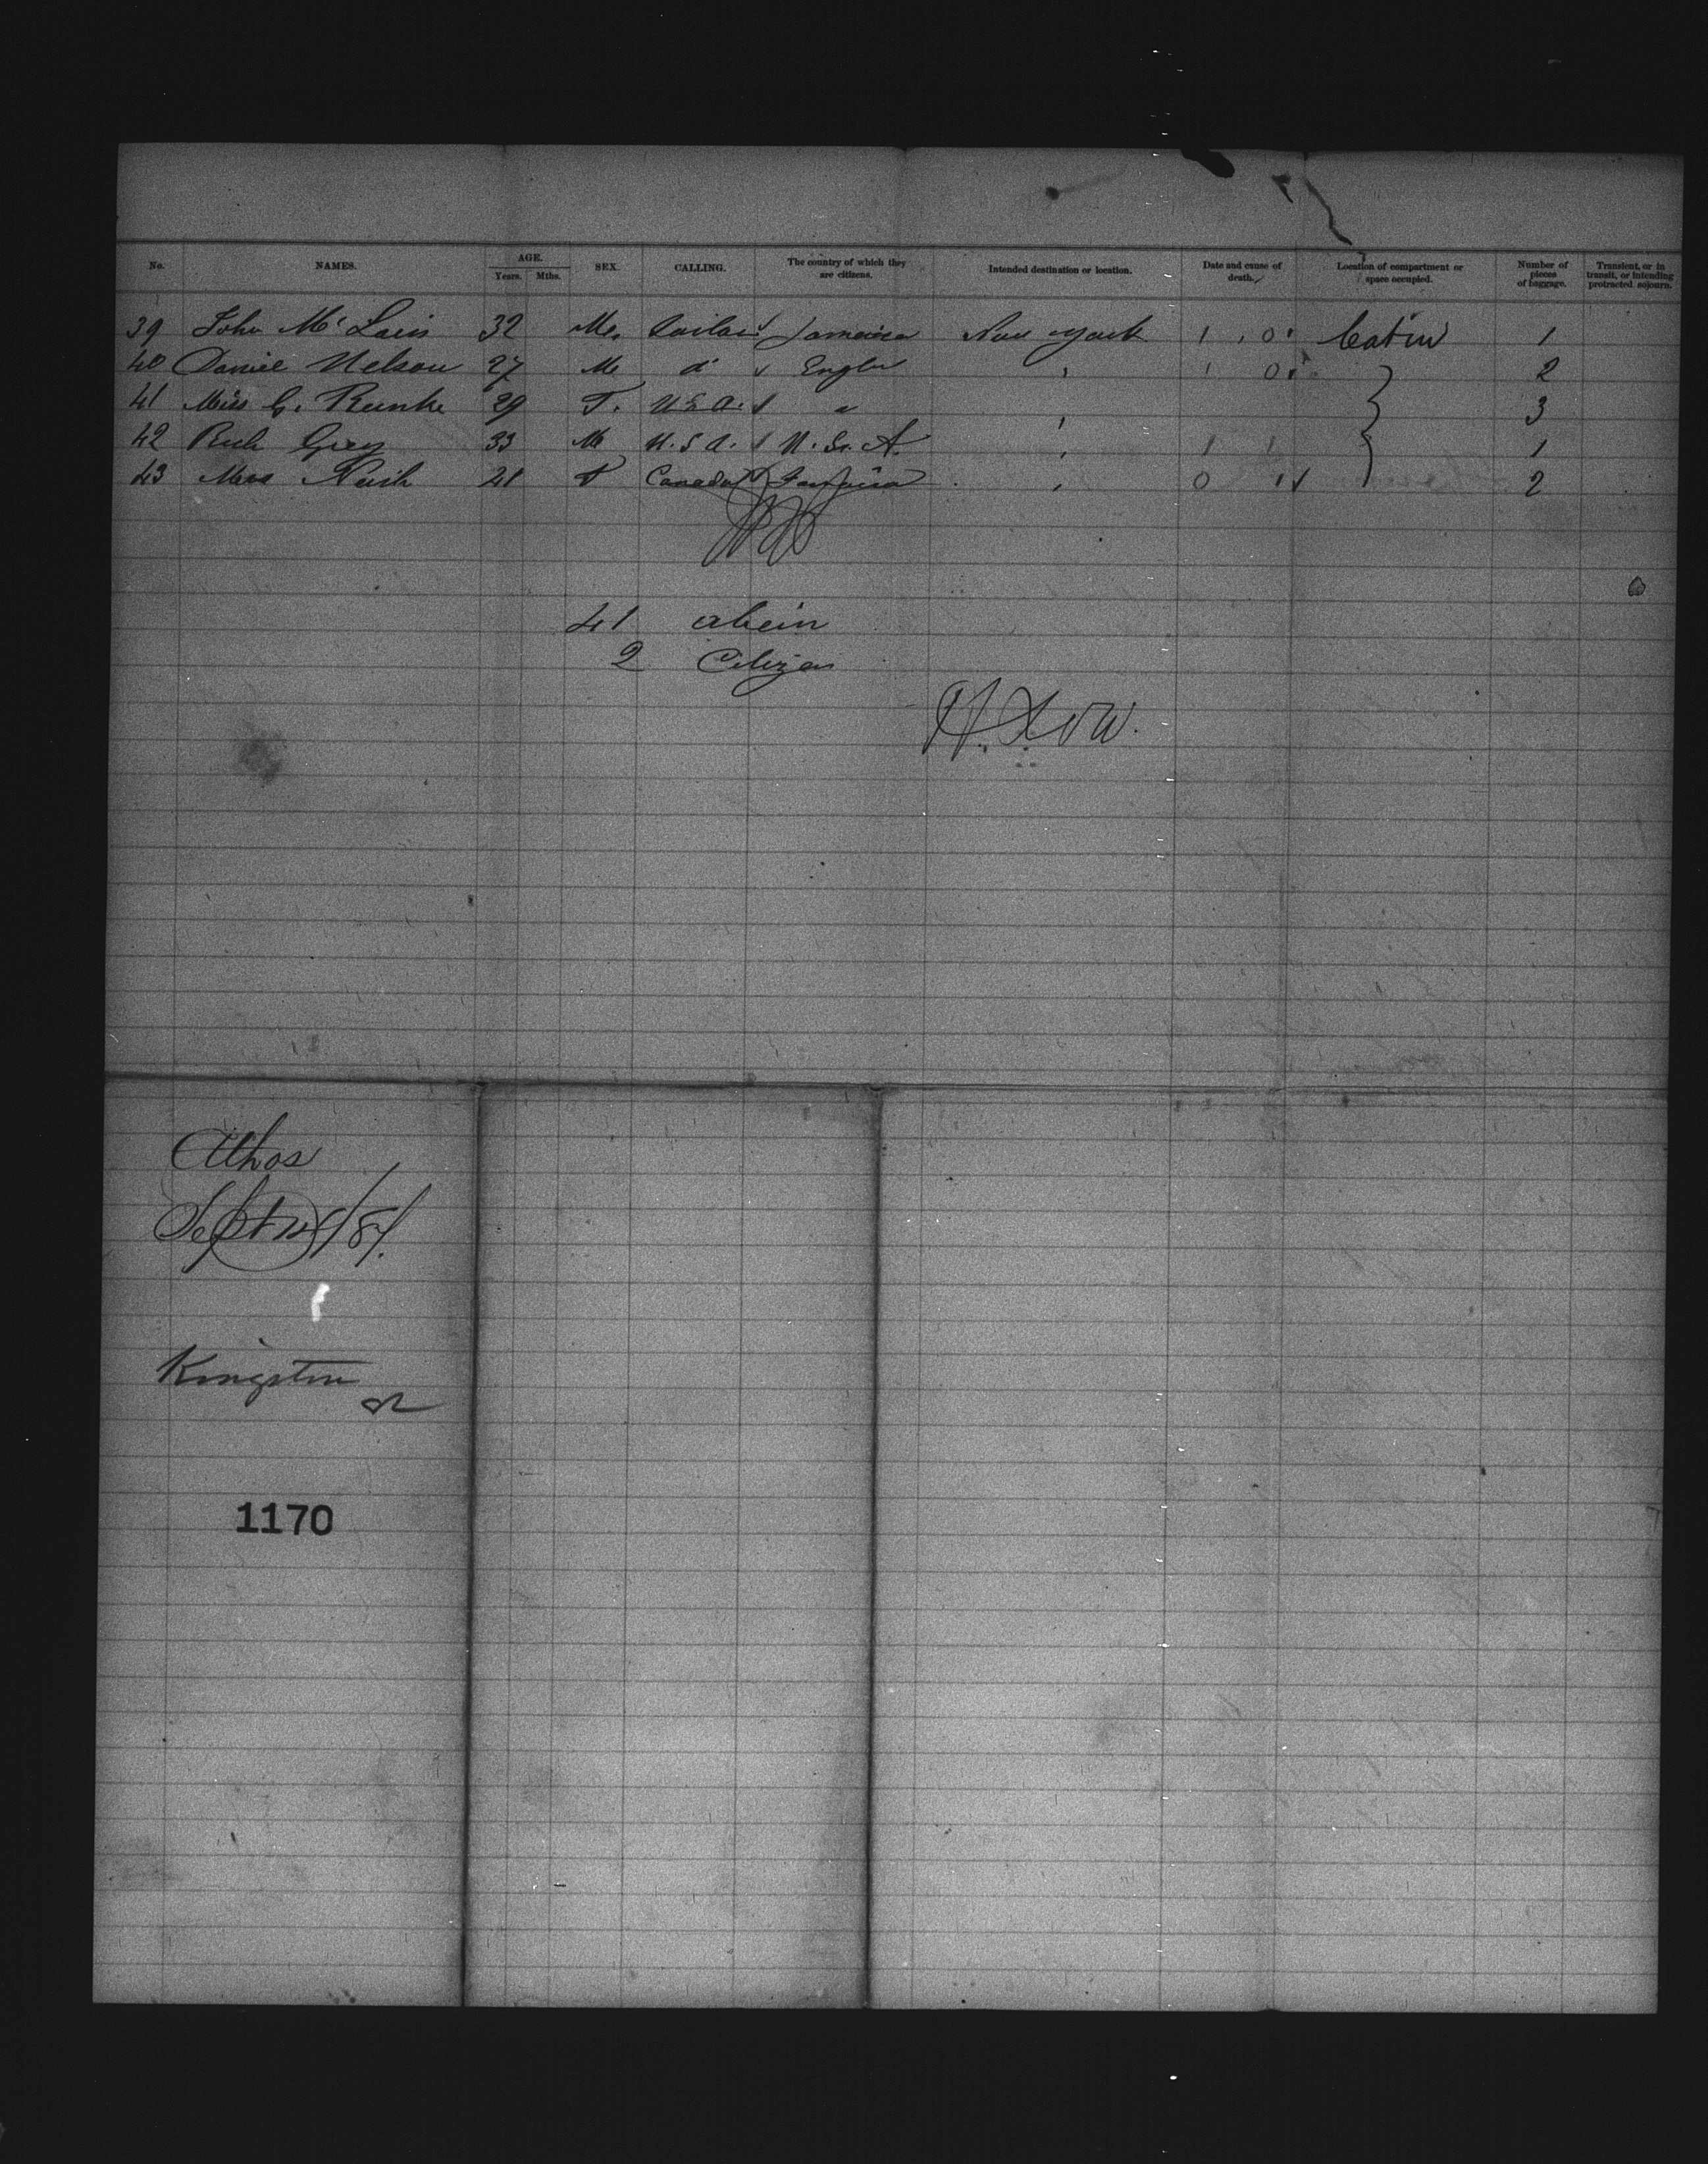 No. NAMES. AGE. Years. Mths. SEX. CALLING. The country of which they are citizens. Intended destination or location. Date and cause of death. Location of compartment or space occupied. Number of pieces of baggage. Transient, or in transit, or intending protracted sojourn.
39 John Mc Lain 32 M. Jamaica New York 1 0 Cabin 1
40 Daniel Nelson 27 M do 1 0 2
41 Miss G. Runke 29 F. U S A. " 3
42 Rich Grey 33 M U. S A. U. S. A. 1 1 1
43 Nash 21 F Canada Jamaica 0 1 2
41 alein
2 Citizen
Athos
Sept
Kingston
1170